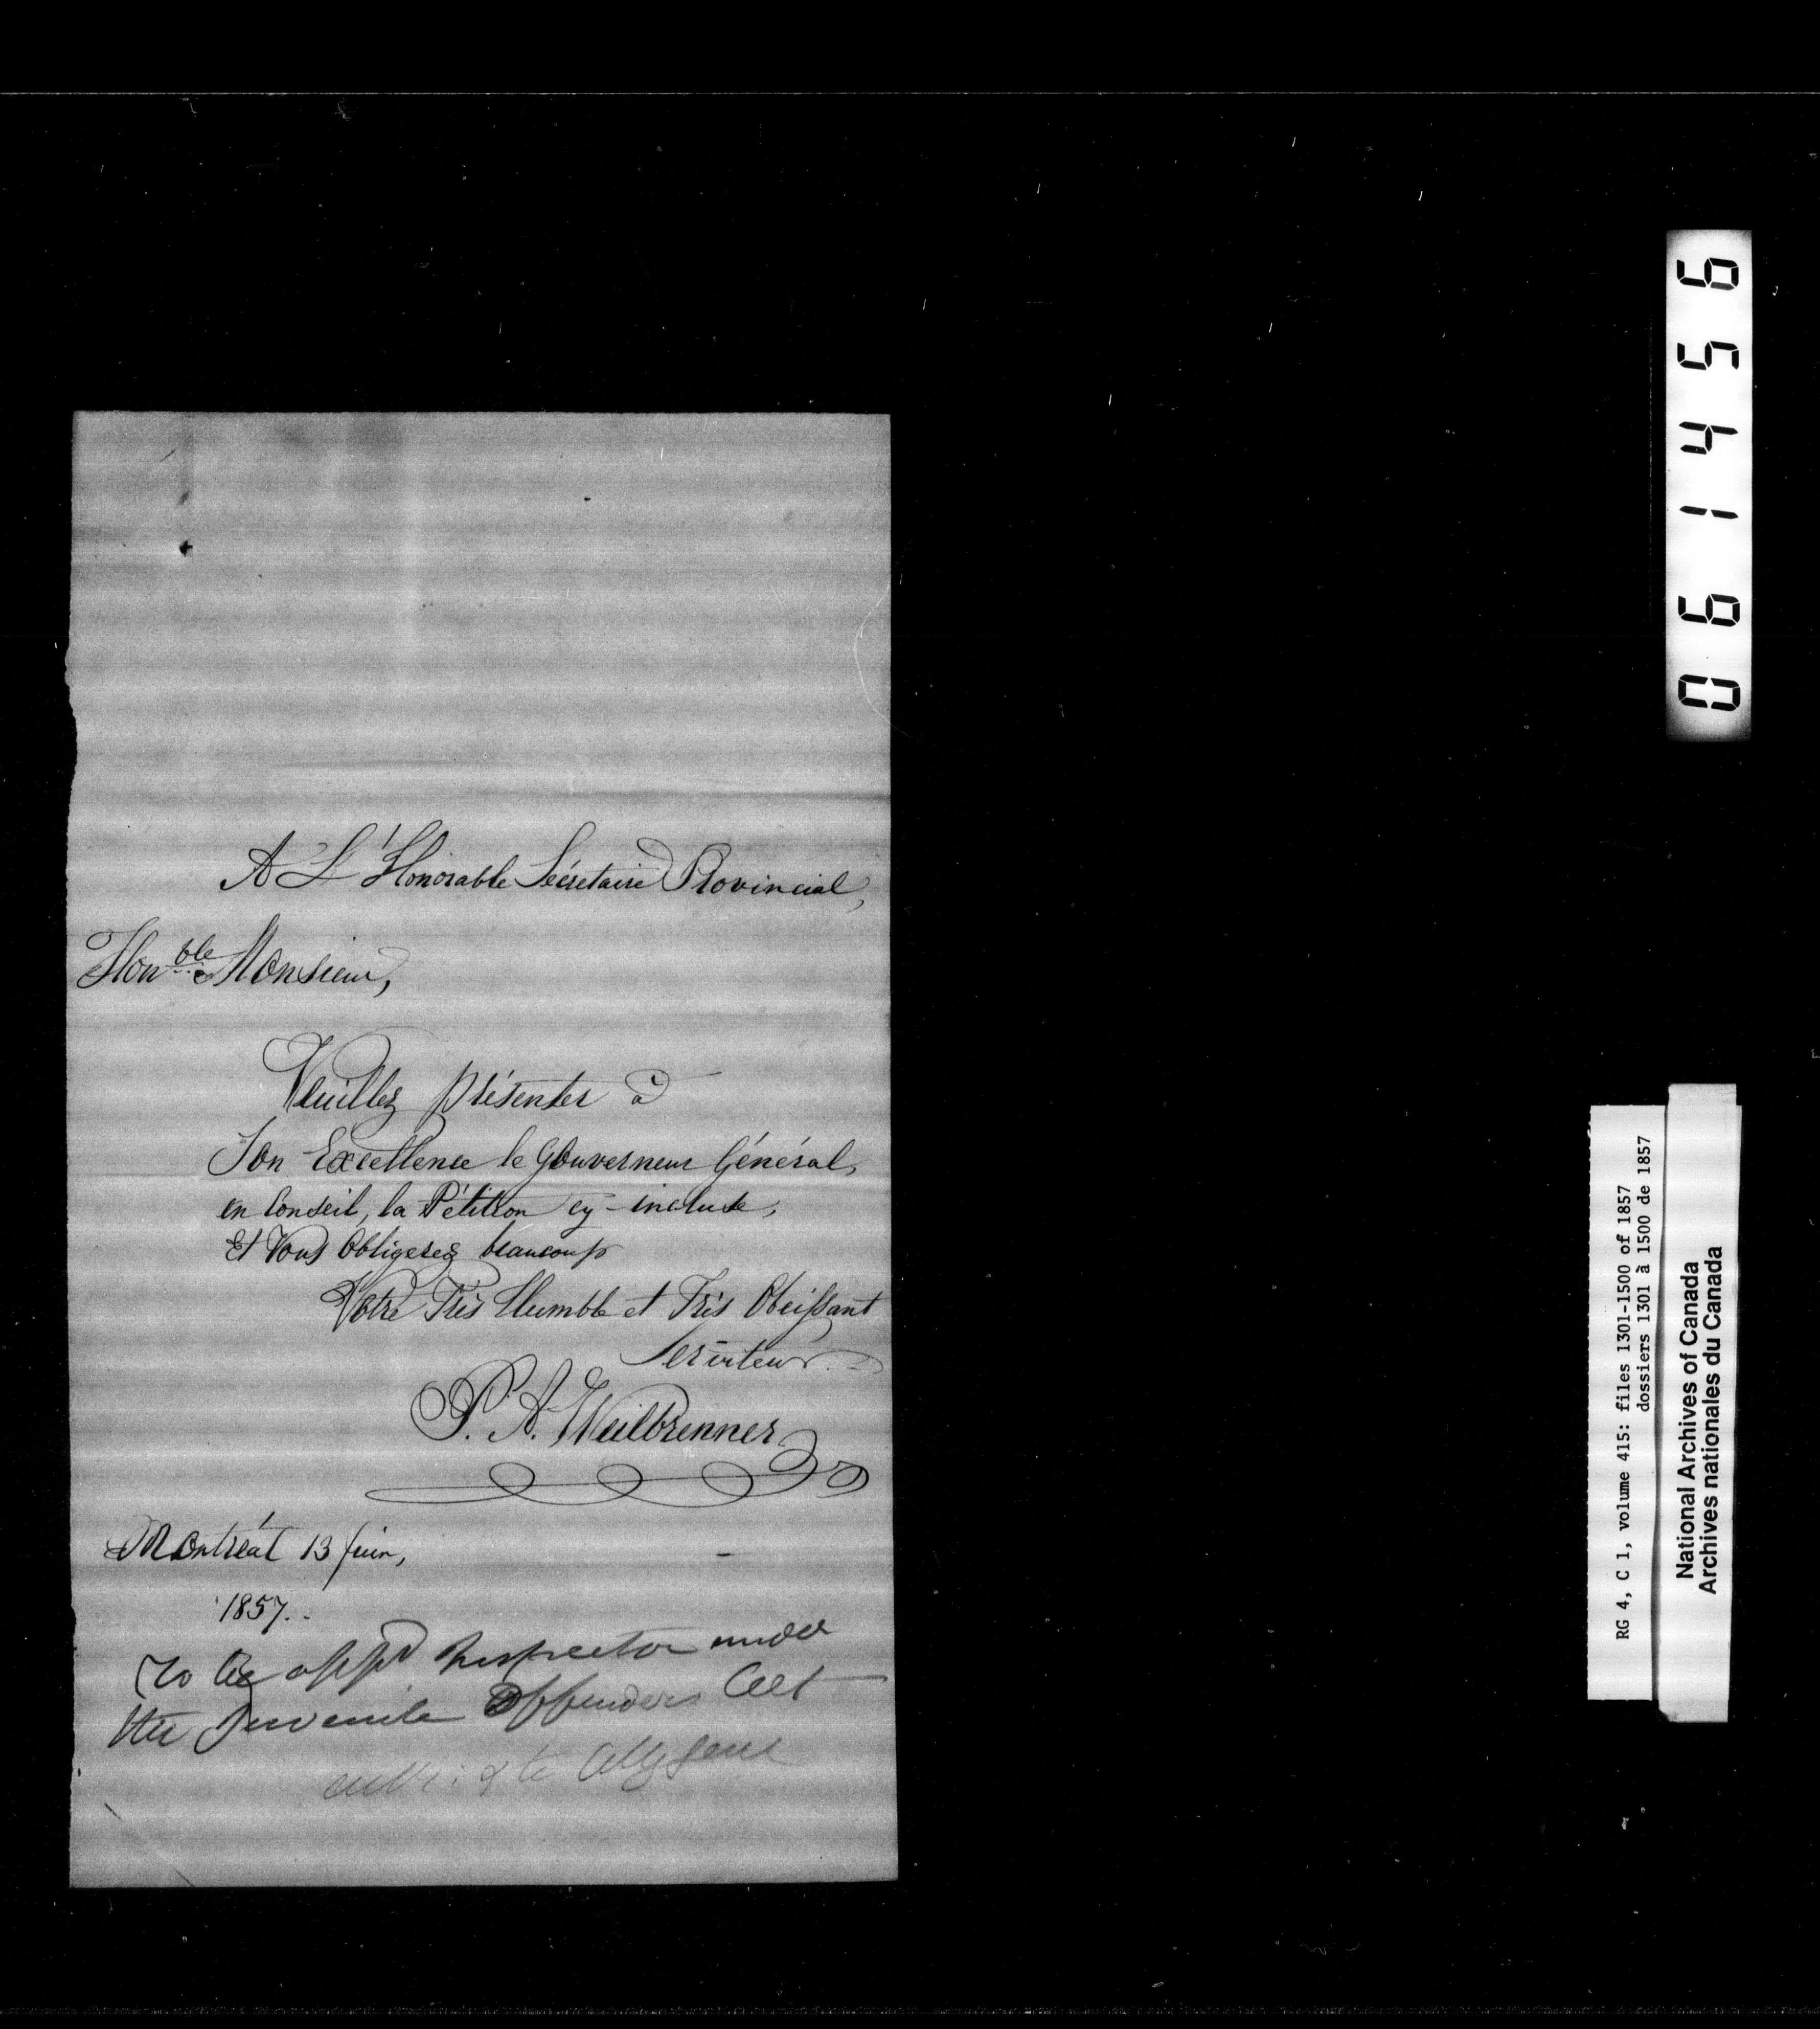 A L'Honorable Sécretaire Provincial,
Hon.ble Monsieur,
Veuillez présenter à
Son Excellence le Gouverneur Général,
en Conseil, la Pétition cy-incluse,
Et Vous Obligerez beaucoup
Votre Très Humble et Très Obeissant
Serviteur.
P. A. Weilbrenner
Montréal 13 Juin,
1857.
To be appd Inspector under
the Juvenile Offenders Act
061456
RG 4, C 1, volume 415: files 1301-1500 of 1857
dossiers 1301 à 1500 de 1857
National Archives of Canada
Archives nationales du Canada